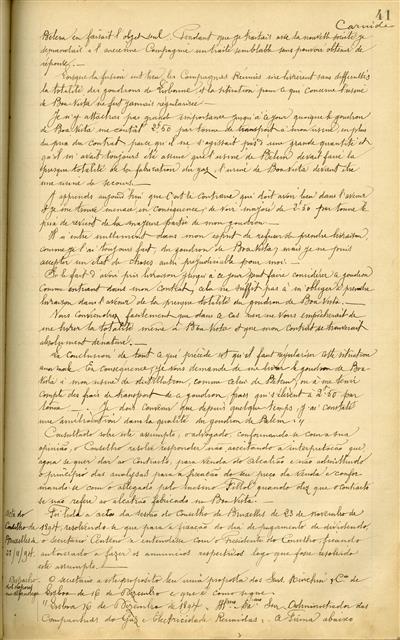 41
Carnide
Belem en faisait l'objet seul. Pendant que je traitais avec la nouvelle Société je
demandais à l'ancienne Compagnie un traité semblable sans pouvoir obtenir de
réponse. —
Lorsque la fusion eut lieu, les Compagnies Réunies me livrèrent sans difficultés
la totalité des goudrons de Lisbonne et la situation pour ce qui concerne l'usine
de Boa Vista ne fut jamais régularisée —
Je n'y attachais pas grande importance jusqu'à ce jour quoique le goudron
de Boa Vista me coutât 2.50 par tonne de transport à mon usine, en plus
du prix du contrat, parce qu'il ne s'agissait pas d'une grande quantité et
qu'il m'avait toujours été assuré que l'usine de Belem devait faire la
presque totalité de la fabrication du gaz, l'usine de Boa Vista devant être
une usine de secours. —
J'apprends aujourd'hui que c'est le contraire qui doit avoir lieu dans l'avenir
et je me trouve menacé, en conséquence, de voir majoré de 2.50 par tonne le
prix de revient de la majeure partie de mon goudron. —
Il n'entre nullement dans mon esprit de refuser de prendre livraison,
comme je l'ai toujours fait, du goudron de Boa Vista, mais je ne puis
accepter un état de choses aussi préjudiciable pour moi. —
Si le fait d'avoir pris livraison jusqu'à ce jour peut faire considérer le goudron
comme entrant dans mon Contrat, cela ne suffit pas à m'obliger à prendre
livraison dans l'avenir de la presque totalité du goudron de Boa Vista. —
Vous conviendrez facilement que dans ce cas rien ne vous empêcherait de
me livrer la totalité même à Boa Vista et que mon contrat se trouverait
absolument dénaturé. —
La conclusion de tout ce qui précède est qu'il faut régulariser cette situation
En conséquence, je vous demande de me livrer le goudron de Boa
Vista à mon usine de distillation, comme celui de Belem, ou à me tenir
compte des frais de transport de ce goudron, frais qui s'élèvent à 2.50 par
tonne — Je dois convenir que depuis quelque temps, j'ai constaté
une amélioration dans la qualité du goudron de Belem."
Consultado sobre este assumpto, o advogado, conformando-se com a sua
opinião, o Conselho resolve responder não acceitando a interpretação que
agora se quer dar ao contracto, para venda do alcatrão e não admittindo
o principio das analyses para a fixação do seu preço da venda e confor-
mando-se com o allegado pelo mesmo Fillol quando diz que o contracto
se não refere ao alcatrão fabricado na Boa Vista. —
Acta do
Conselho de
Bruxellas de
23/11/94.
Foi lida a acta da sessão do Conselho de Bruxellas de 23 de novembro de
1894, resolvendo-se que para a fixação do dia de pagamento do dividendo,
o secretario Centeno se entendesse com o Presidente do Conselho, ficando
authorisado a fazer os annuncios respectivos logo que fosse resolvido
este assumpto. —
O secretario a este proposito leu uma proposta dos Snrs.
Lisboa 16 de Dezembro e que é como segue:
"Lisboa 16 de Dezembro de 1894. Illmos. Exmos. Snrs. Administradores das
Companhias do Gaz e Electricidade Reunidas. — A Firma abaixo